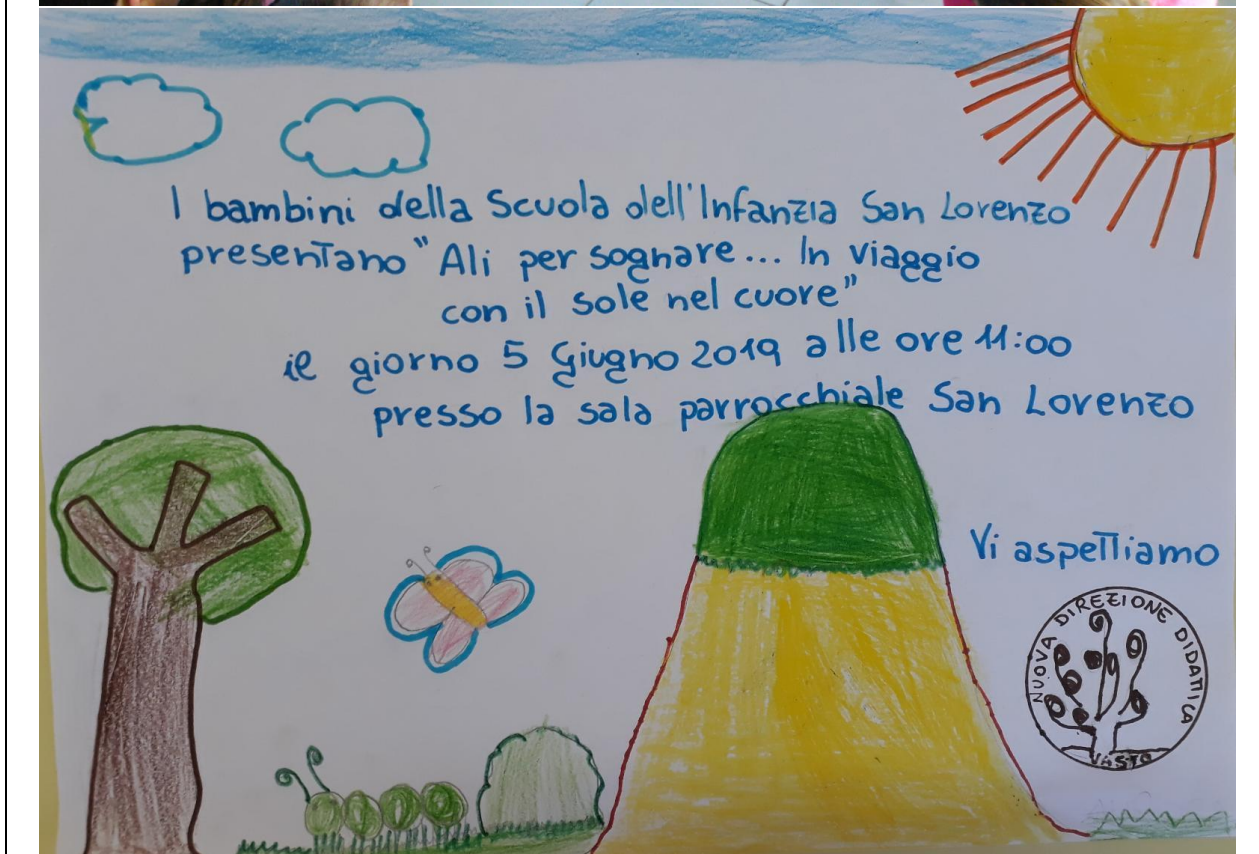 I bambini della Scuola dell'Infanzia San Lorenzo
presentano "Ali per sognare... In viaggio
con il sole nel cuore"
il giorno 5 Giugno 2019 alle ore 11:00
presso la sala parrocchiale San Lorenzo
Vi aspettiamo
NUOVA DIREZIONE DIDATTICA
VASTO